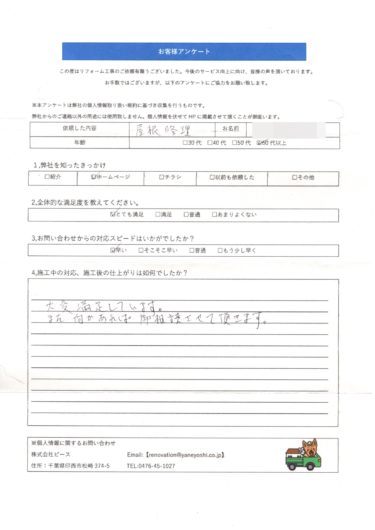 お客様アンケート
この度はリフォーム工事のご依頼有難うございました。今後のサービス向上に向け、皆様の声を頂いております。
お手数ではございますが、以下のアンケートにご協力をお願い致します。
※本アンケートは弊社の個人情報取り扱い規約に基づき収集を行うものです。
弊社からのご連絡以外の用途には使用致しません。個人情報を伏せてHPに掲載させて頂くことが御座います。
依頼した内容 屋根修理 お名前
年齢 □30代 □40代 □50代 ☑60代以上
1,弊社を知ったきっかけ
□紹介 ☑ホームページ □チラシ □以前も依頼した □その他
2,全体的な満足度を教えてください。
☑とても満足 □満足 □普通 □あまりよくない
3,お問い合わせからの対応スピードはいかがでしたか?
☑早い □そこそこ早い □普通 □もう少し早く
4,施工中の対応、施工後の仕上がりは如何でしたか?
大変満足しています。
また何かあれば御相談させて頂きます。
※個人情報に関するお問い合わせ
株式会社ピース Email:【renovation@yaneyoshi.co.jp】
住所:千葉県印西市松崎374-5 TEL:0476-45-1027